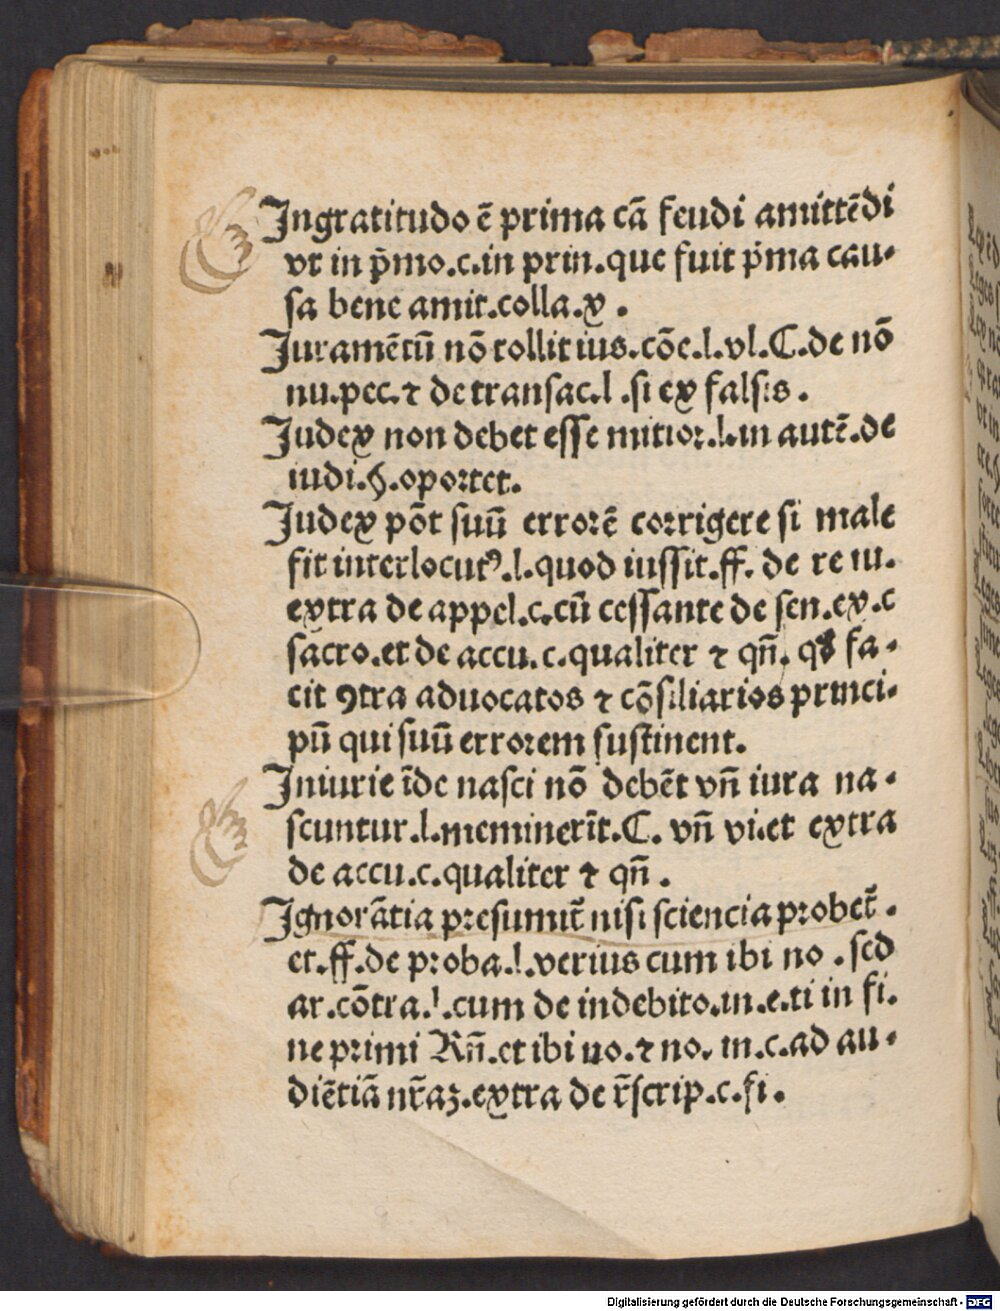 Ingratitudo ē prima cā feudi amittēdi
vt in p̄mo.c.in prin.que fuit p̄ma cau-
sa bene amit.colla.x.
Juramētū nō tollit ius.cōe.l.vl.C.de nō
nu.pec.⁊ de transac.l.si ex falsis.
Judex non debet esse mitior.l.in autē.de
iudi.§.oportet.
Judex pōt suū errorē corrigere si male
fit interlocutꝰ.l.quod iussit.ff. de re iu.
extra de appel.c.cū cessante de sen.ex.c
sacro.et de accu.c.qualiter ⁊ qn̄. qđ fa-
cit ꝯtra aduocatos ⁊ cōsiliarios princi-
pū qui suū errorem sustinent.
Iniurie īde nasci nō debēt vn̄ iura na-
scuntur.l.meminerīt.C. vn̄ vi.et extra
de accu.c.qualiter ⁊ qn̄.
Ignorātia presumit̄ nisi sciencia probet̄.
et.ff.de proba.l.verius cum ibi no.sed
ar.cōtra.l.cum de indebito.in.e.ti in fi.
ne primi Rn̄.et ibi no.⁊ no. in.c.ad au-
diētiā nr̄aꝫ.extra de r̄scrip.c.fi.
Digitalisierung gefördert durch die Deutsche Forschungsgemeinschaft - DFG